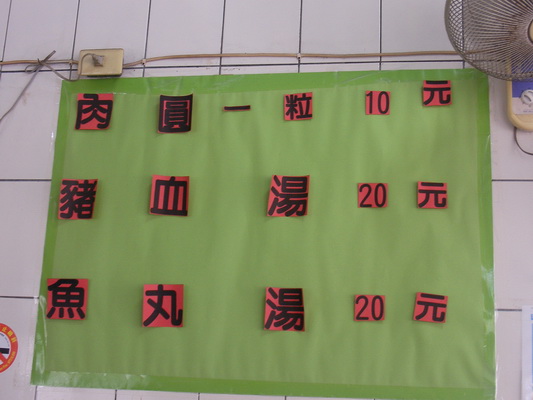 肉圓一粒10元
豬血湯20元
魚丸湯20元